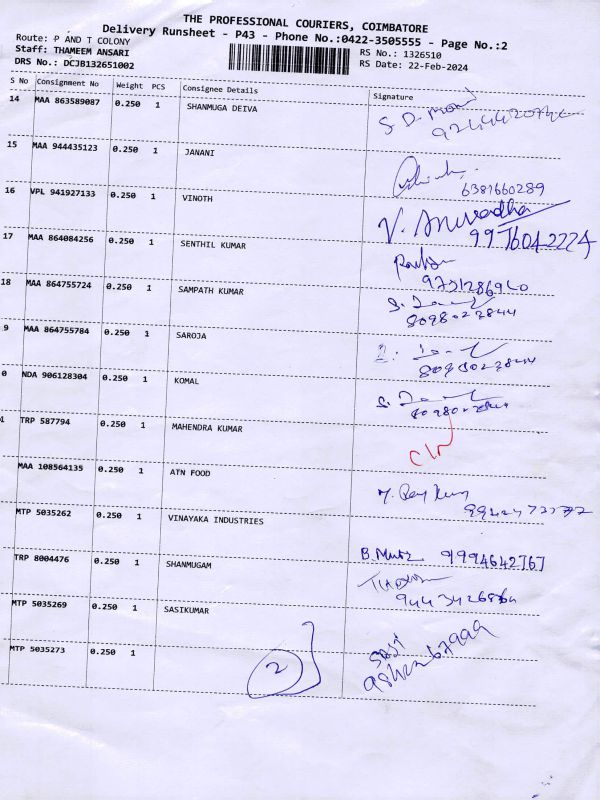 THE PROFESSIONAL COURIERS, COIMBATORE
Delivery Runsheet - P43 - Phone No.:0422-3505555 - Page No.:2
Route: P AND T COLONY
RS No.: 1326510
Staff: THAMEEM ANSARI
RS Date: 22-Feb-2024
DRS No.: DCJB132651002
S No Consignment No Weight PCS Consignee Details Signature
14 MAA 863589087 0.250 1 SHANMUGA DEIVA S. D.
15 MAA 944435123 0.250 1 JANANI
6381660289
16 VPL 941927133 0.250 1 VINOTH V. Anuradha
9976042224
17 MAA 864084256 0.250 1 SENTHIL KUMAR
9731286960
18 MAA 864755724 0.250 1 SAMPATH KUMAR S.
8098023844
9 MAA 864755784 0.250 1 SAROJA
8098023844
0 NDA 906128304 0.250 1 KOMAL S.
1 TRP 587794 0.250 1 MAHENDRA KUMAR
MAA 108564135 0.250 1 ATN FOOD
MTP 5035262 0.250 1 VINAYAKA INDUSTRIES
TRP 8004476 0.250 1 SHANMUGAM B. 9994642767
MTP 5035269 0.250 1 SASIKUMAR
MTP 5035273 0.250 1 SASI
2